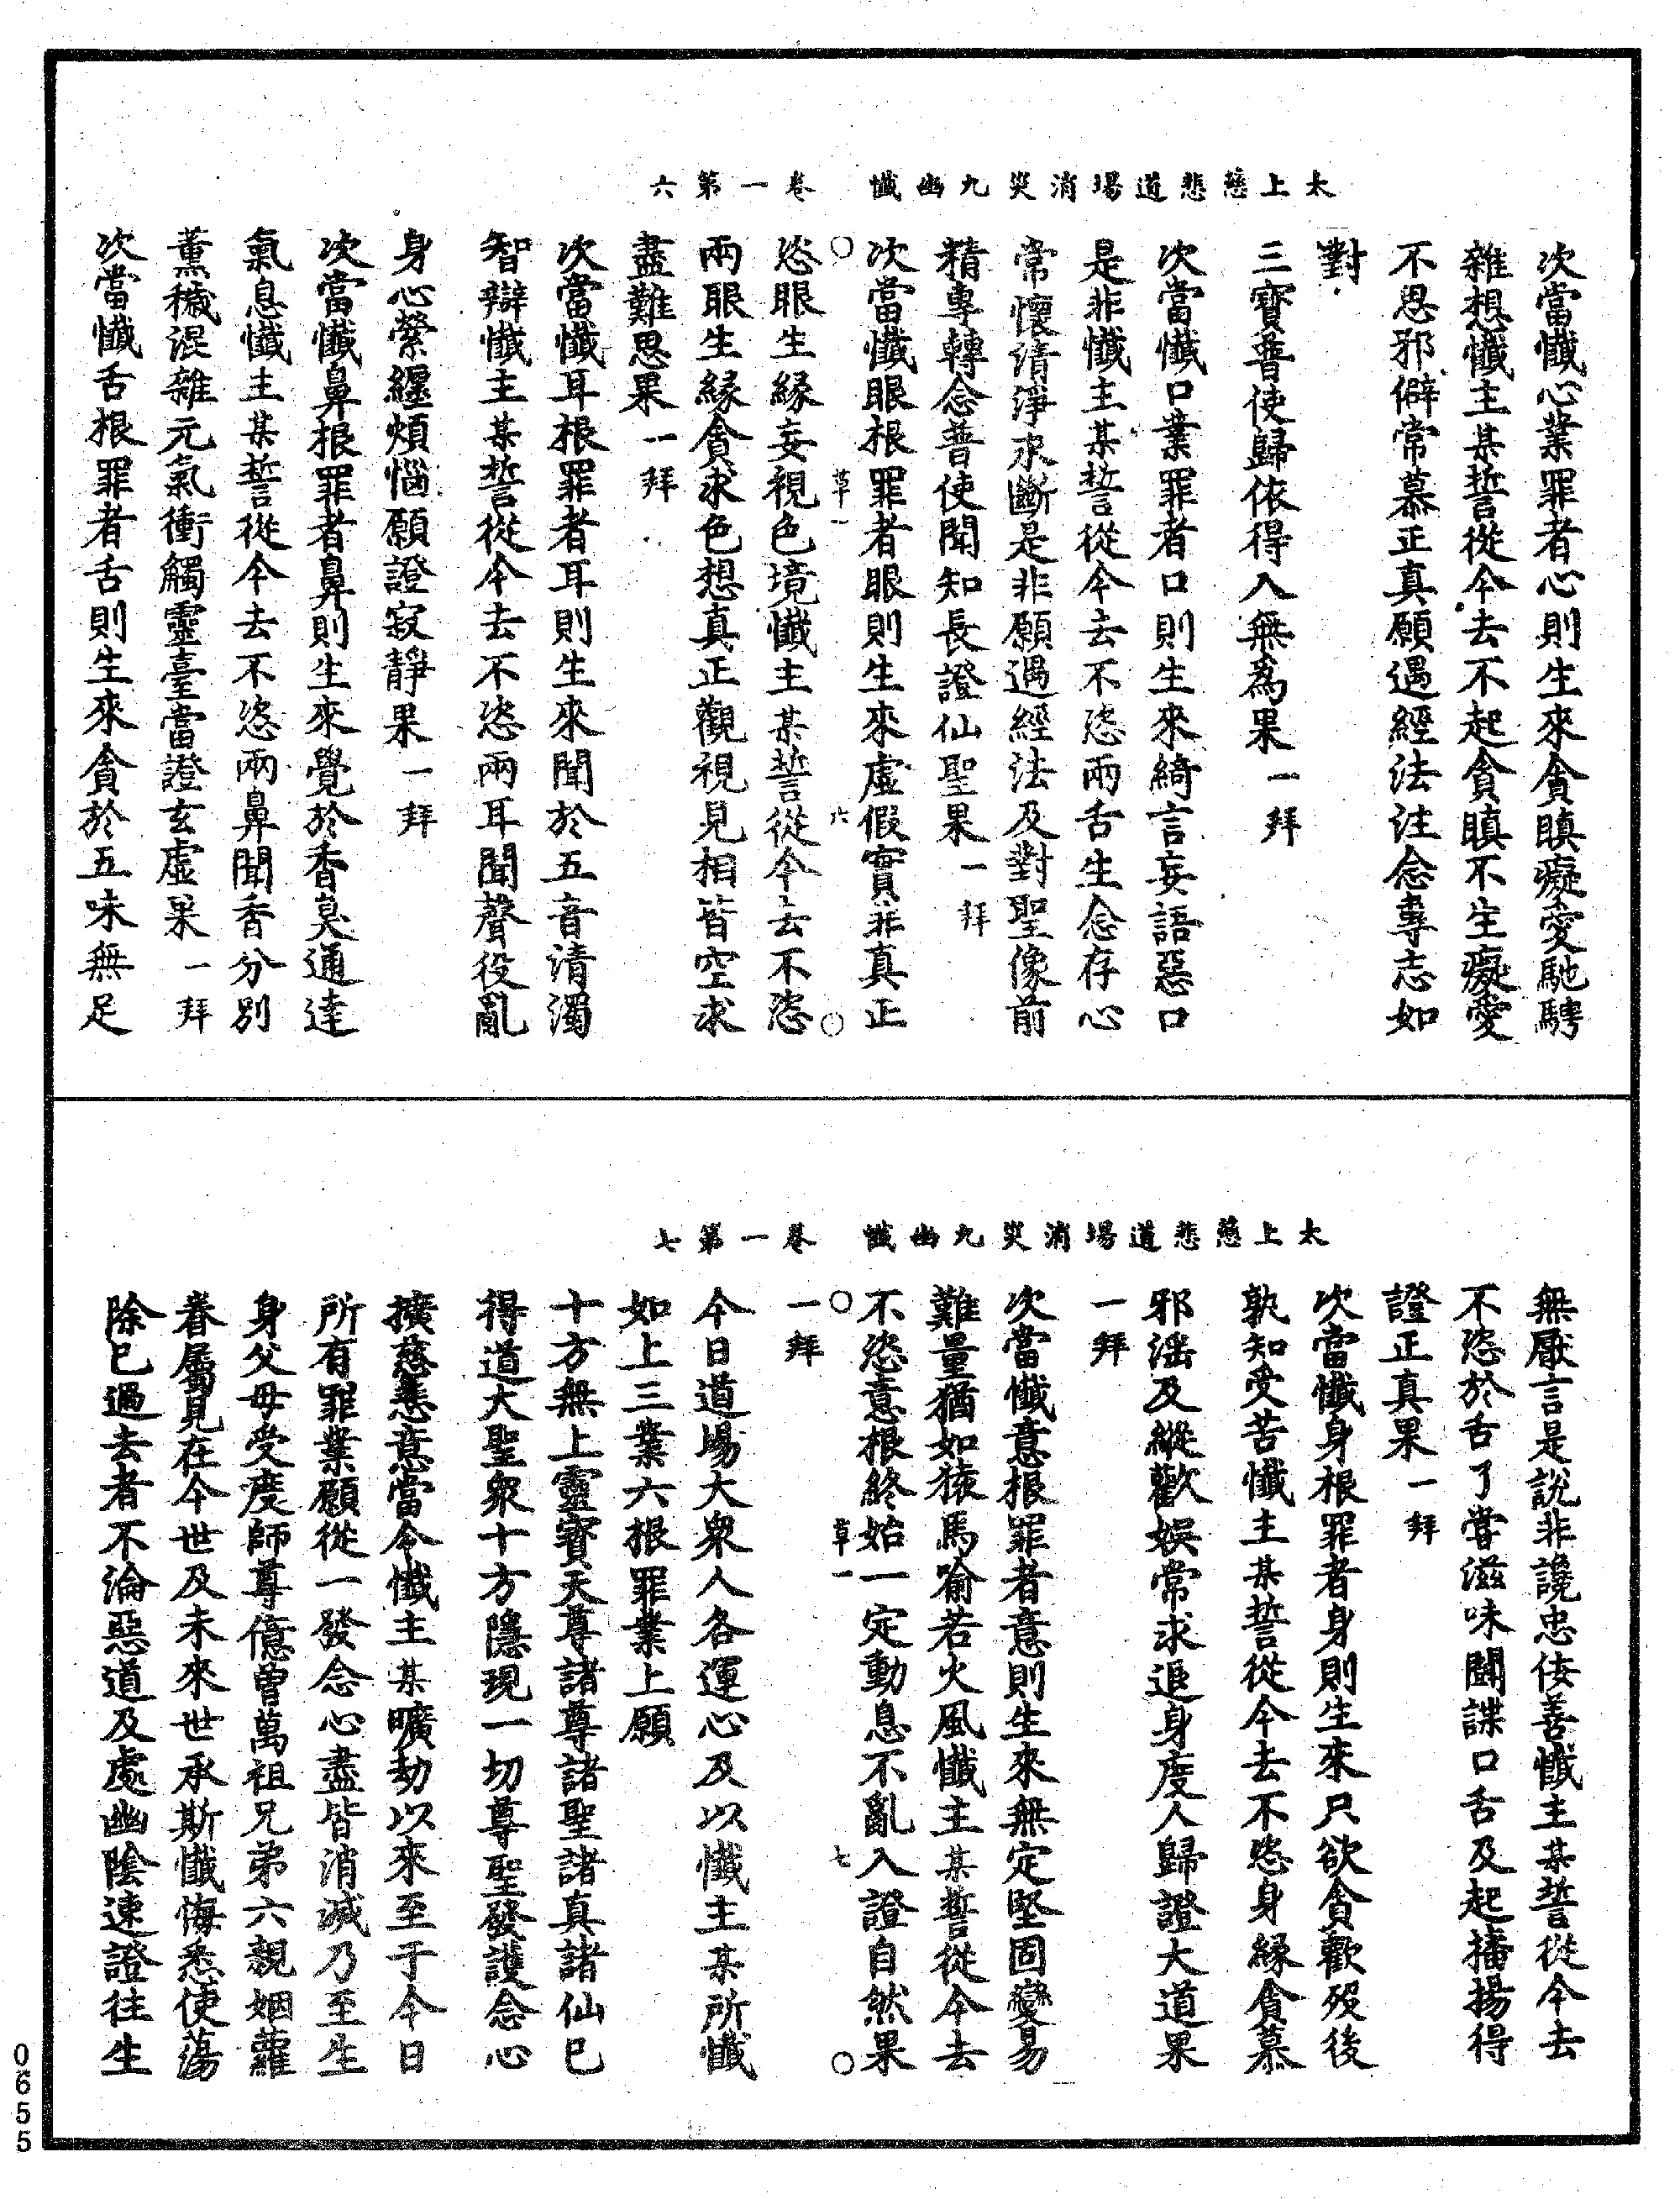 太上慈悲道場消災九幽懺　卷一第六
次當懺心業罪者心則生來貪瞋癡愛馳騁
雜想懺主某誓從今去不起貪瞋不生癡愛
不思邪僻常慕正真願遇經法注念專志如
對
三寶普使歸依得入無為果一拜
次當懺口業罪者口則生來綺言妄語惡口
是非懺主某誓從今去不恣兩舌生念存心
常懷清淨永斷是非願遇經法及對聖像前
精專轉念普使聞知長證仙聖果一拜
次當懺眼根罪者眼則生來虛假實非真正
草一　六
恣眼生緣妄視色境懺主某誓從今去不恣
兩眼生緣貪求色想真正觀視見相皆空求
盡難思果一拜
次當懺耳根罪者耳則生來聞於五音清濁
智辯懺主某誓從今去不恣兩耳聞聲役亂
身心縈纏煩惱願證寂靜果一拜
次當懺鼻根罪者鼻則生來覺於香臭通達
氣息懺主某誓從今去不恣兩鼻聞香分別
薰穢混雜元氣衝觸靈臺當證玄虛果一拜
次當懺舌根罪者舌則生來貪於五味無足
太上慈悲道場消災九幽懺　卷一第七
無厭言是說非讒忠佞善懺主某誓從今去
不恣於舌了嘗滋味鬭諜口舌及起播揚得
證正真果一拜
次當懺身根罪者身則生來只欲貪歡歿後
孰知受苦懺主某誓從今去不恣身緣貪慕
邪滛及縱歡娛常求追身度人歸證大道果
一拜
次當懺意根罪者意則生來無定堅固變易
難量猶如猿馬喻若火風懺主某誓從今去
不恣意根終始一定動息不亂入證自然果
草一　七
一拜
今日道場大衆人各運心及以懺主某所懺
如上三業六根罪業上願
十方無上靈寶天尊諸尊諸聖諸真諸仙已
得道大聖衆十方隱現一切尊聖發護念心
擴慈悲意當令懺主某曠劫以來至于今日
所有罪業願從一發念心盡皆消滅乃至生
身父母受度師尊億曾萬祖兄弟六親姻蘿
眷屬見在今世及未來世承斯懺悔悉使蕩
除已過去者不淪惡道及處幽陰速證往生
0655